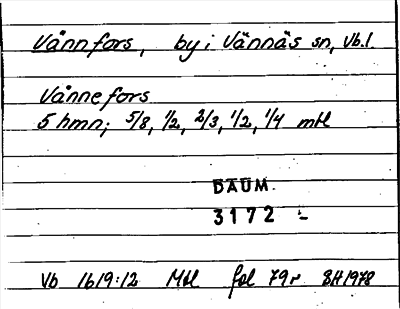 Vännfors, by i Vännäs sn, Vb.l.
Vånnefors
5 hmn; 5/8, 1/2, 2/3, 1/2, 1/4 mtl
DAUM.
3172 -
Vb 1619:12 Mtl fol 79r BH 1978